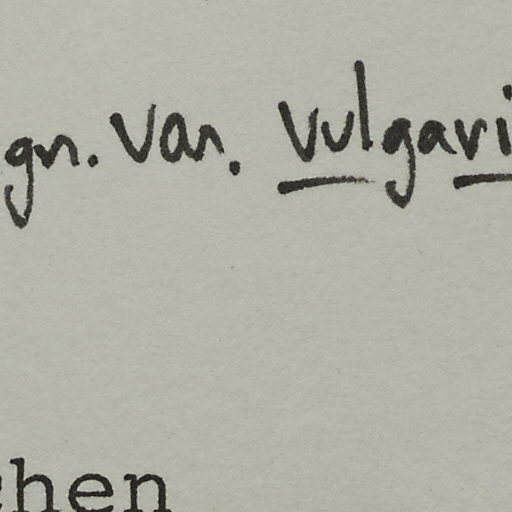 gn. var. vulgari
chen